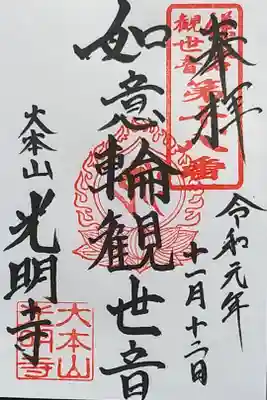 奉拝
令和元年
十一月十二日
如意輪観世音
大本山
光明寺
観世音
第十八番
大本山
光明寺